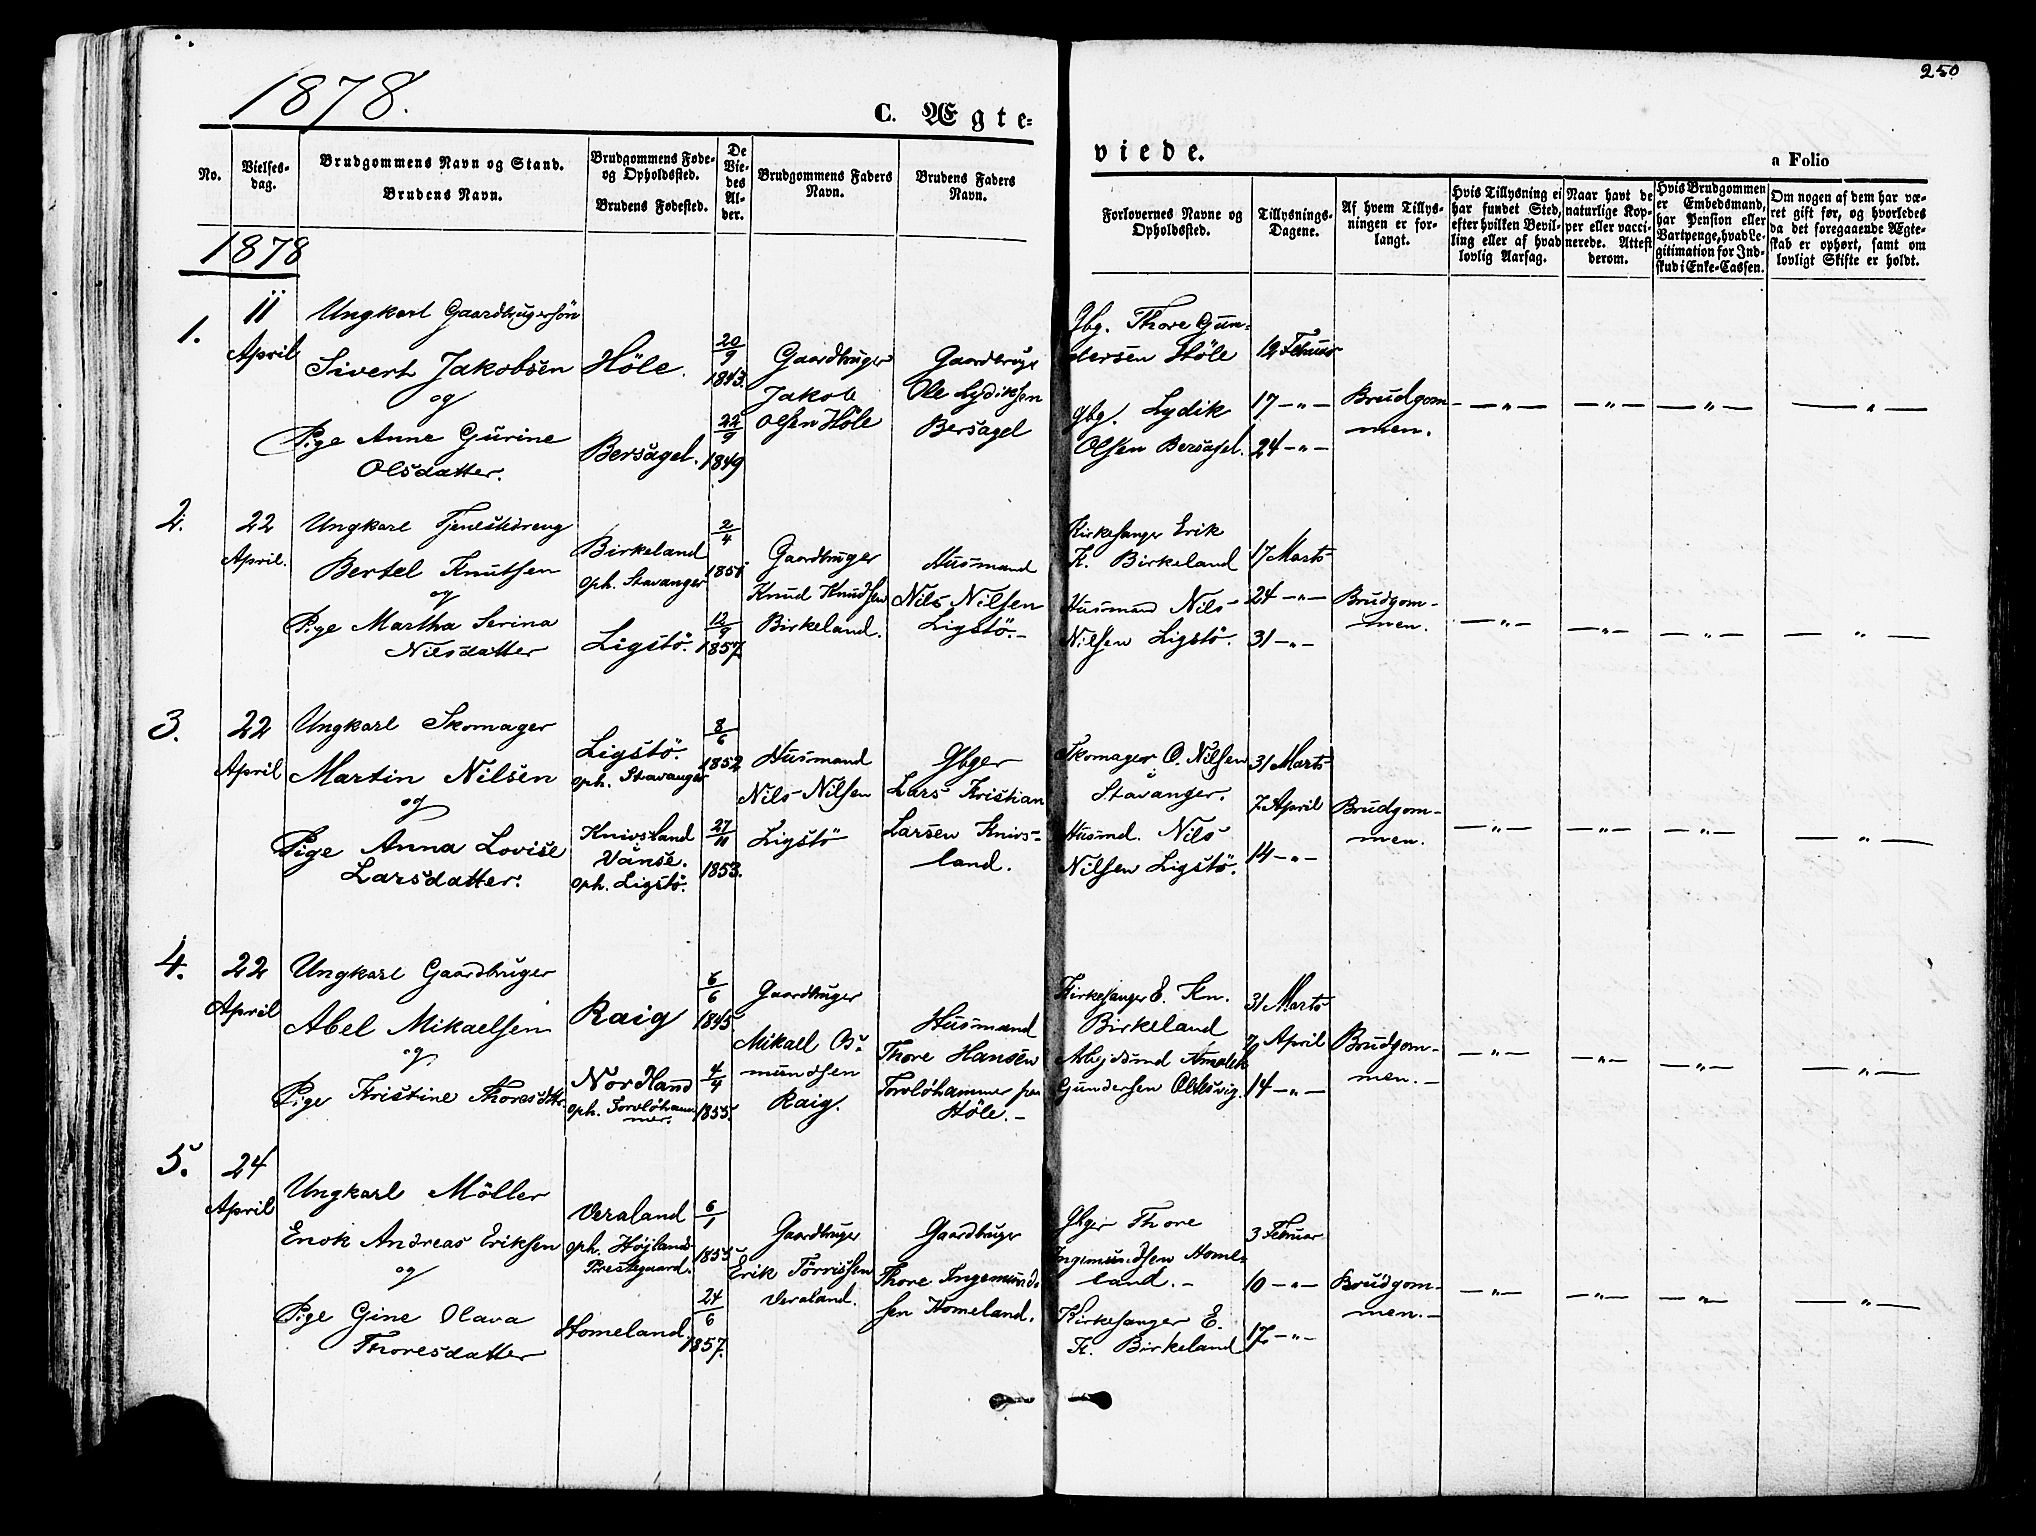 1878.
C. Ægte-
viede.
250
a Folio
No.
Vielses-
dag.
Brudgommens Navn og Stand.
Brudens Navn.
Brudgommens Føde-
og Opholdssted.
Brudens Fødested.
De
Vie-
des
Al-
der.
Brudgommens Faders
Navn.
Brudens Faders
Navn.
Forlovernes Navne og
Opholdssted.
Tillysnings-
Dagene.
Af hvem Tillys-
ningen er for-
langt.
Hvis Tillysning ei
har fundet Sted,
efter hvilken Bevil-
ling eller af hvad
lovlig Aarsag.
Naar havt de
naturlige Kop-
per eller vacci-
nerede. Attest
derom.
Hvis Brudgommen
er Embedsmand,
har Pension eller
Vartpenge, hvad Le-
gitimation for Ind-
skud i Enke-Cassen.
Om nogen af dem har væ-
ret gift før, og hvorledes
da det foregaaende Ægte-
skab er ophørt, samt om
lovligt Skifte er holdt.
1878
1.
11
April
Ungkarl Gaardbrugersön
Sivert Jakobsen
og
Pige Anne Gurine
Olsdatter.
Höle.
Bersagel.
20/9
1843.
22/9
1849
Gaardbruger
Jakob
Olsen Höle
Gaardbruger
Ole Lydiksen
Bersagel
Gbg. Thore Gun-
dersen Höle
Gbg. Lydik
Olsen Bersagel.
12 Februar
17 - " -
24 - " -
Brudgom-
men.
- " -
- " -
- " -
- " -
2.
22
April.
Ungkarl Tjenestedreng
Bertel Knutsen
og
Pige Martha Serina
Nilsdatter
Birkeland
oph. Stavanger
Ligstö.
2/4
185
12/9
1857.
Gaardbruger
Knud Knudsen
Birkeland.
Husmand
Nils Nilsen
Ligstö. -
Kirkesanger Erik
K. Birkeland
Husmand Nils
Nilsen Ligstö.
17 Marts
24 - " -
31 - " -
Brudgom-
men.
- " -
- " -
- " -
- " -
3.
22
April
Ungkarl Skomager
Martin Nilsen
og
Pige Anna Lovise
Larsdatter.
Ligstö.
oph. Stavanger
Knivsland
Vanse.
oph. Ligstö.
8/6
1852
27/11
1853.
Husmand
Nils Nilsen
Ligstö
Gbger
Lars Kristian
Larsen Knivs-
land.
Skomager O. Nilsen
Stavanger.
Husmd. Nils
Nilsen Ligstö.
31 Marts
7 April
14 - " -
Brudgom-
men.
- " -
- " -
- " -
- " -
4.
22
April
Ungkarl Gaardbruger
Abel Mikaelsen
og
Pige Kristine Thoresdtr.
Raig
Nordland
oph. Forvlöham
mer.
6/6
1845
4/4
1855.
Gaardbruger
Mikael Os-
mundsen
Raig.
Husmand
Thore Hansen
Höle. -
Kirkesanger E. Kn.
Birkeland
Gundersen Oltesvig.
31 Marts
7 April
14 - " -
Brudgom-
men. -
- " -
- " -
- " -
- " -
5.
24
April
Ungkarl Möller
Enok Andreas Eriksen
og
Pige Gine Olava
Thoresdatter
Veraland
oph. Højlands
Prestegaard.
Homeland
6/1
1855
24/6
1857.
Gaardbruger
Erik Törrissen
Veraland.
Gaardbruger
Thore Ingemund-
sen Homeland.
Gbger Thore
Ingemundsen Home-
land. -
Kirkesanger E.
K. Birkeland
3 Februar
10 - " -
17 - " -
Brudgom-
men. -
- " -
- " -
- " -
- " -